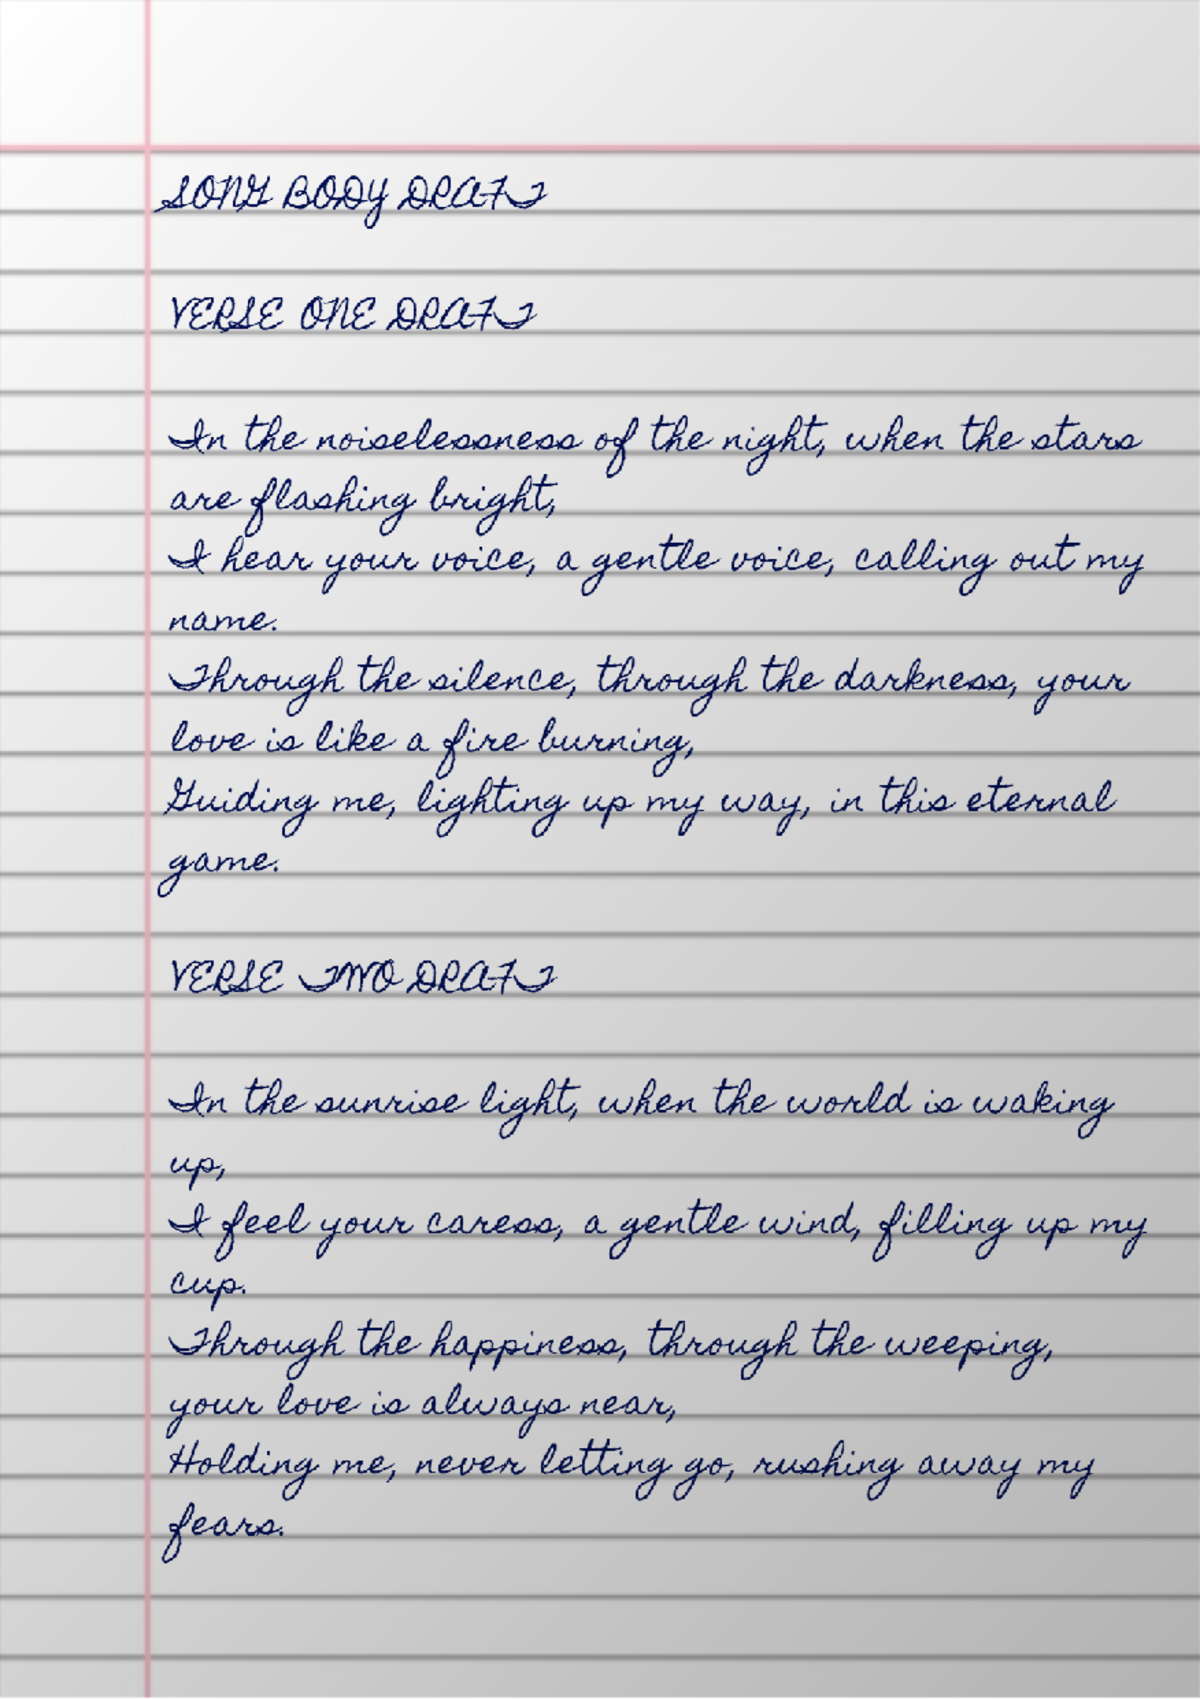 SONG BODY DRAFT
VERSE ONE DRAFT
In the noiselessness of the night, when the stars
are flashing bright,
I hear your voice, a gentle voice, calling out my
name.
Through the silence, through the darkness, your
love is like a fire burning,
Guiding me, lighting up my way, in this eternal
game.
VERSE TWO DRAFT
In the sunrise light, when the world is waking
up,
I feel your caress, a gentle wind, filling up my
cup.
Through the happiness, through the weeping,
your love is always near,
Holding me, never letting go, rushing away my
fears.